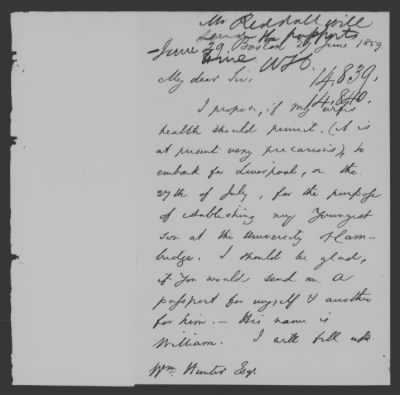 Mr Reddall will
send the passports
June 29. Boston 27 June 1859
WH.
My dear Sir, 14,839,
14,840.
I propose, if my wife's
health should permit, (it is
at present very precarious), to
embark for Liverpool, on the
27th of July, for the purpose
of establishing my Youngest
son at the University of Cam-
bridge. I should be glad,
if You would send me a
passport for myself & another
for him. — His name is
William. I will fill up
Wm. Hunter Esqr.